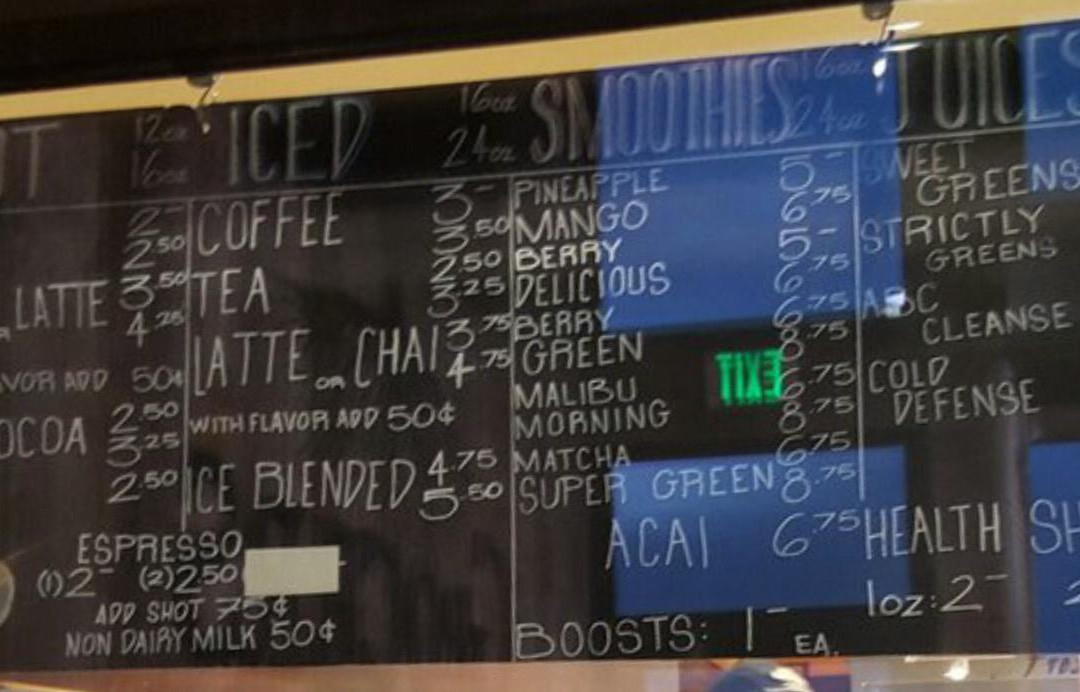 OT 12oz 16oz
2-
2.50
LATTE 3.50
4.25
AVOR ADD 50¢
OCOA 2.50
3.25
2.50
ESPRESSO
(1)2- (2)2.50
ADD SHOT 75¢
NON DAIRY MILK 50¢
ICED 16oz 24oz
COFFEE 3-
3.50
TEA 2.50
3.25
LATTE OR CHAI 3.75
4.75
WITH FLAVOR ADD 50¢
ICE BLENDED 4.75
5.50
SMOOTHIES 16oz 24oz
PINEAPPLE 5-
MANGO 6.75
BERRY 5-
DELICIOUS 6.75
BERRY 6.75
GREEN 8.75
MALIBU 6.75
MORNING 8.75
MATCHA 6.75
SUPER GREEN 8.75
ACAI 6.75
BOOSTS: 1- EA.
EXIT
JUICES
SWEET
GREENS
STRICTLY
GREENS
ABC
CLEANSE
COLD
DEFENSE
HEALTH SH
1oz: 2-